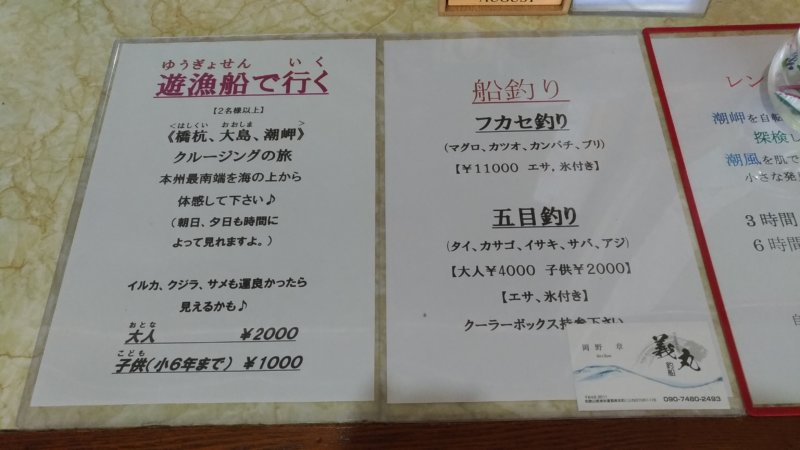 AUGUST
ゆうぎょせん いく
遊漁船で行く
【2名様以上】
はしくい おおしま
《橋杭、大島、潮岬》
クルージングの旅
本州最南端を海の上から
体感して下さい♪
(朝日、夕日も時間に
よって見れますよ。)
イルカ、クジラ、サメも運良かったら
見えるかも♪
おとな
大人 ¥2000
こども
子供(小6年まで) ¥1000
船釣り
フカセ釣り
(マグロ、カツオ、カンパチ、ブリ)
【¥11000 エサ,氷付き】
五目釣り
(タイ、カサゴ、イサキ、サバ、アジ)
【大人¥4000 子供¥2000】
【エサ、氷付き】
クーラーボックス持参下さい
岡野 章
義丸
釣船
090-7480-2493
レン
潮岬を自転
探検し
潮風を肌で
小さな発
3時間
6時間
自